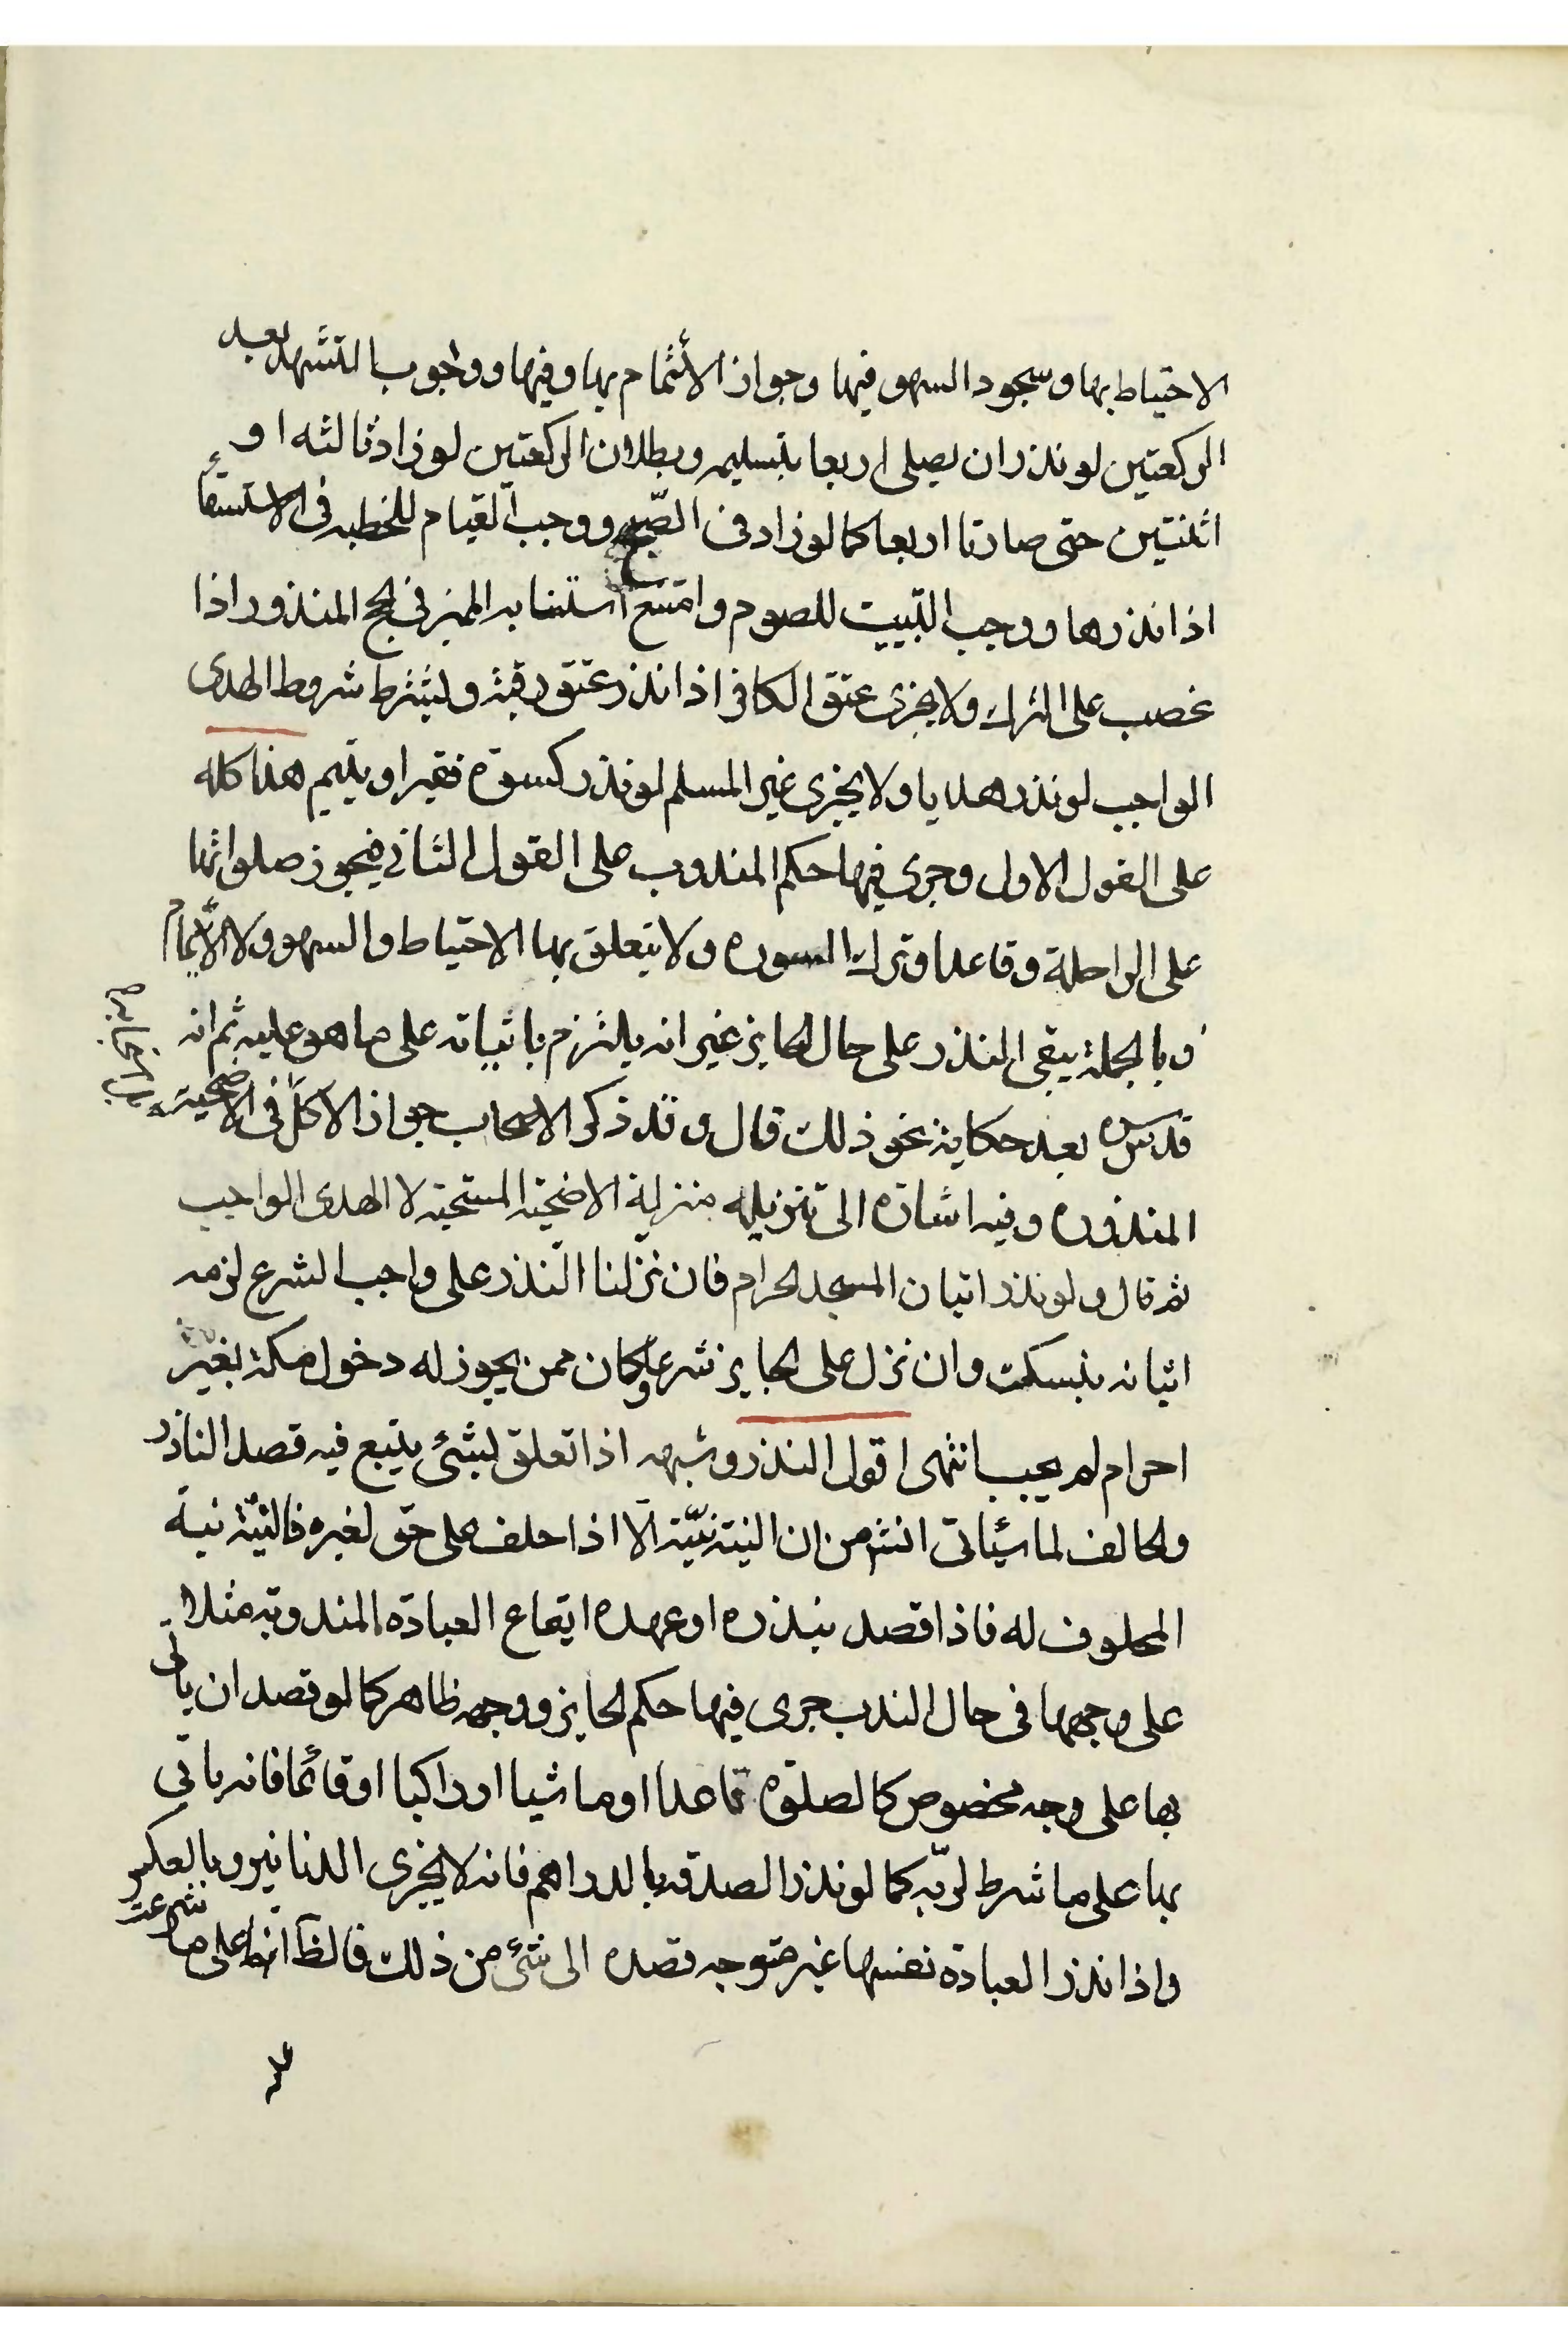 الاحتياط بها وسجود السهو فيها وجواز الأئتمام بها وفيها ووجوب التشهد بعد
الركعتين لو نذر ان يصلى اربعا بتسليمه وبطلان الركعتين لو زاد ثالثه او
اثنتين حتى صارتا اربعا كما لو زاد فى الصّبح ووجب القيام للخطبه فى الاستسقاء
اذا نذرها ووجب التبييت للصوم وامتنع استنابه المميز فى الحج المنذور اذا
غصب على الترك ولا يجزى عتق الكافر اذا نذر عتق رقبة ويشترط شروط الهدى
الواجب لو نذر هديا ولا يجزى غير المسلم لو نذر كسوة فقير او يتيم هذا كله
على القول الاول وجرى فيها حكم المندوب على القول الثانى فيجوز صلواتها
على الراحلة وقاعدا وترك السوره ولا يتعلق بها الاحتياط والسهو ولا الأئتمام
وبالجملة يبقى المنذر على حال الجايز غير انه يلتزم باثباته على ما هو عليه ثم انه
قدس سره بعد حكاية نحو ذلك قال وقد ذكر الاصحاب جواز الاكل فى الاضحية
المنذوره وفيه اشارة الى تنزيله منزلة الاضحية المستحبة لا الهدى الواجب
ثم قال ولو نذر اتيان المسجد الحرام فان نزلنا النذر على واجب الشرع لزمه
اتيانه بنسك وان نزل على الجايز شرعا وكان ممن يجوز له دخول مكة بغير
احرام لم يجب انتهى اقول النذر وشبهه اذا تعلق بشئ يتبع فيه قصد الناذر
والحالف لما سيأتى انش من ان النية نيّته الّا اذا حلف على حق لغيره فالنيّة نية
المحلوف له فاذا قصد بنذره او عهده ايقاع العبادة المندوبة مثلا
على وجهها فى حال الندب جرى فيها حكم الجايز ووجهه ظاهر كما لو قصد ان يأتى
بها على وجه مخصوص كالصلوة قاعدا او ماشيا او راكبا او قائما فانه ياتى
بها على ما شرط لربّه كما لو نذر الصدقه بالدراهم فانه لا يجزى الدنانير وبالعكس
واذا نذر العبادة نفسها غير متوجه قصده الى شئ من ذلك فالظ انها على ما شرعت